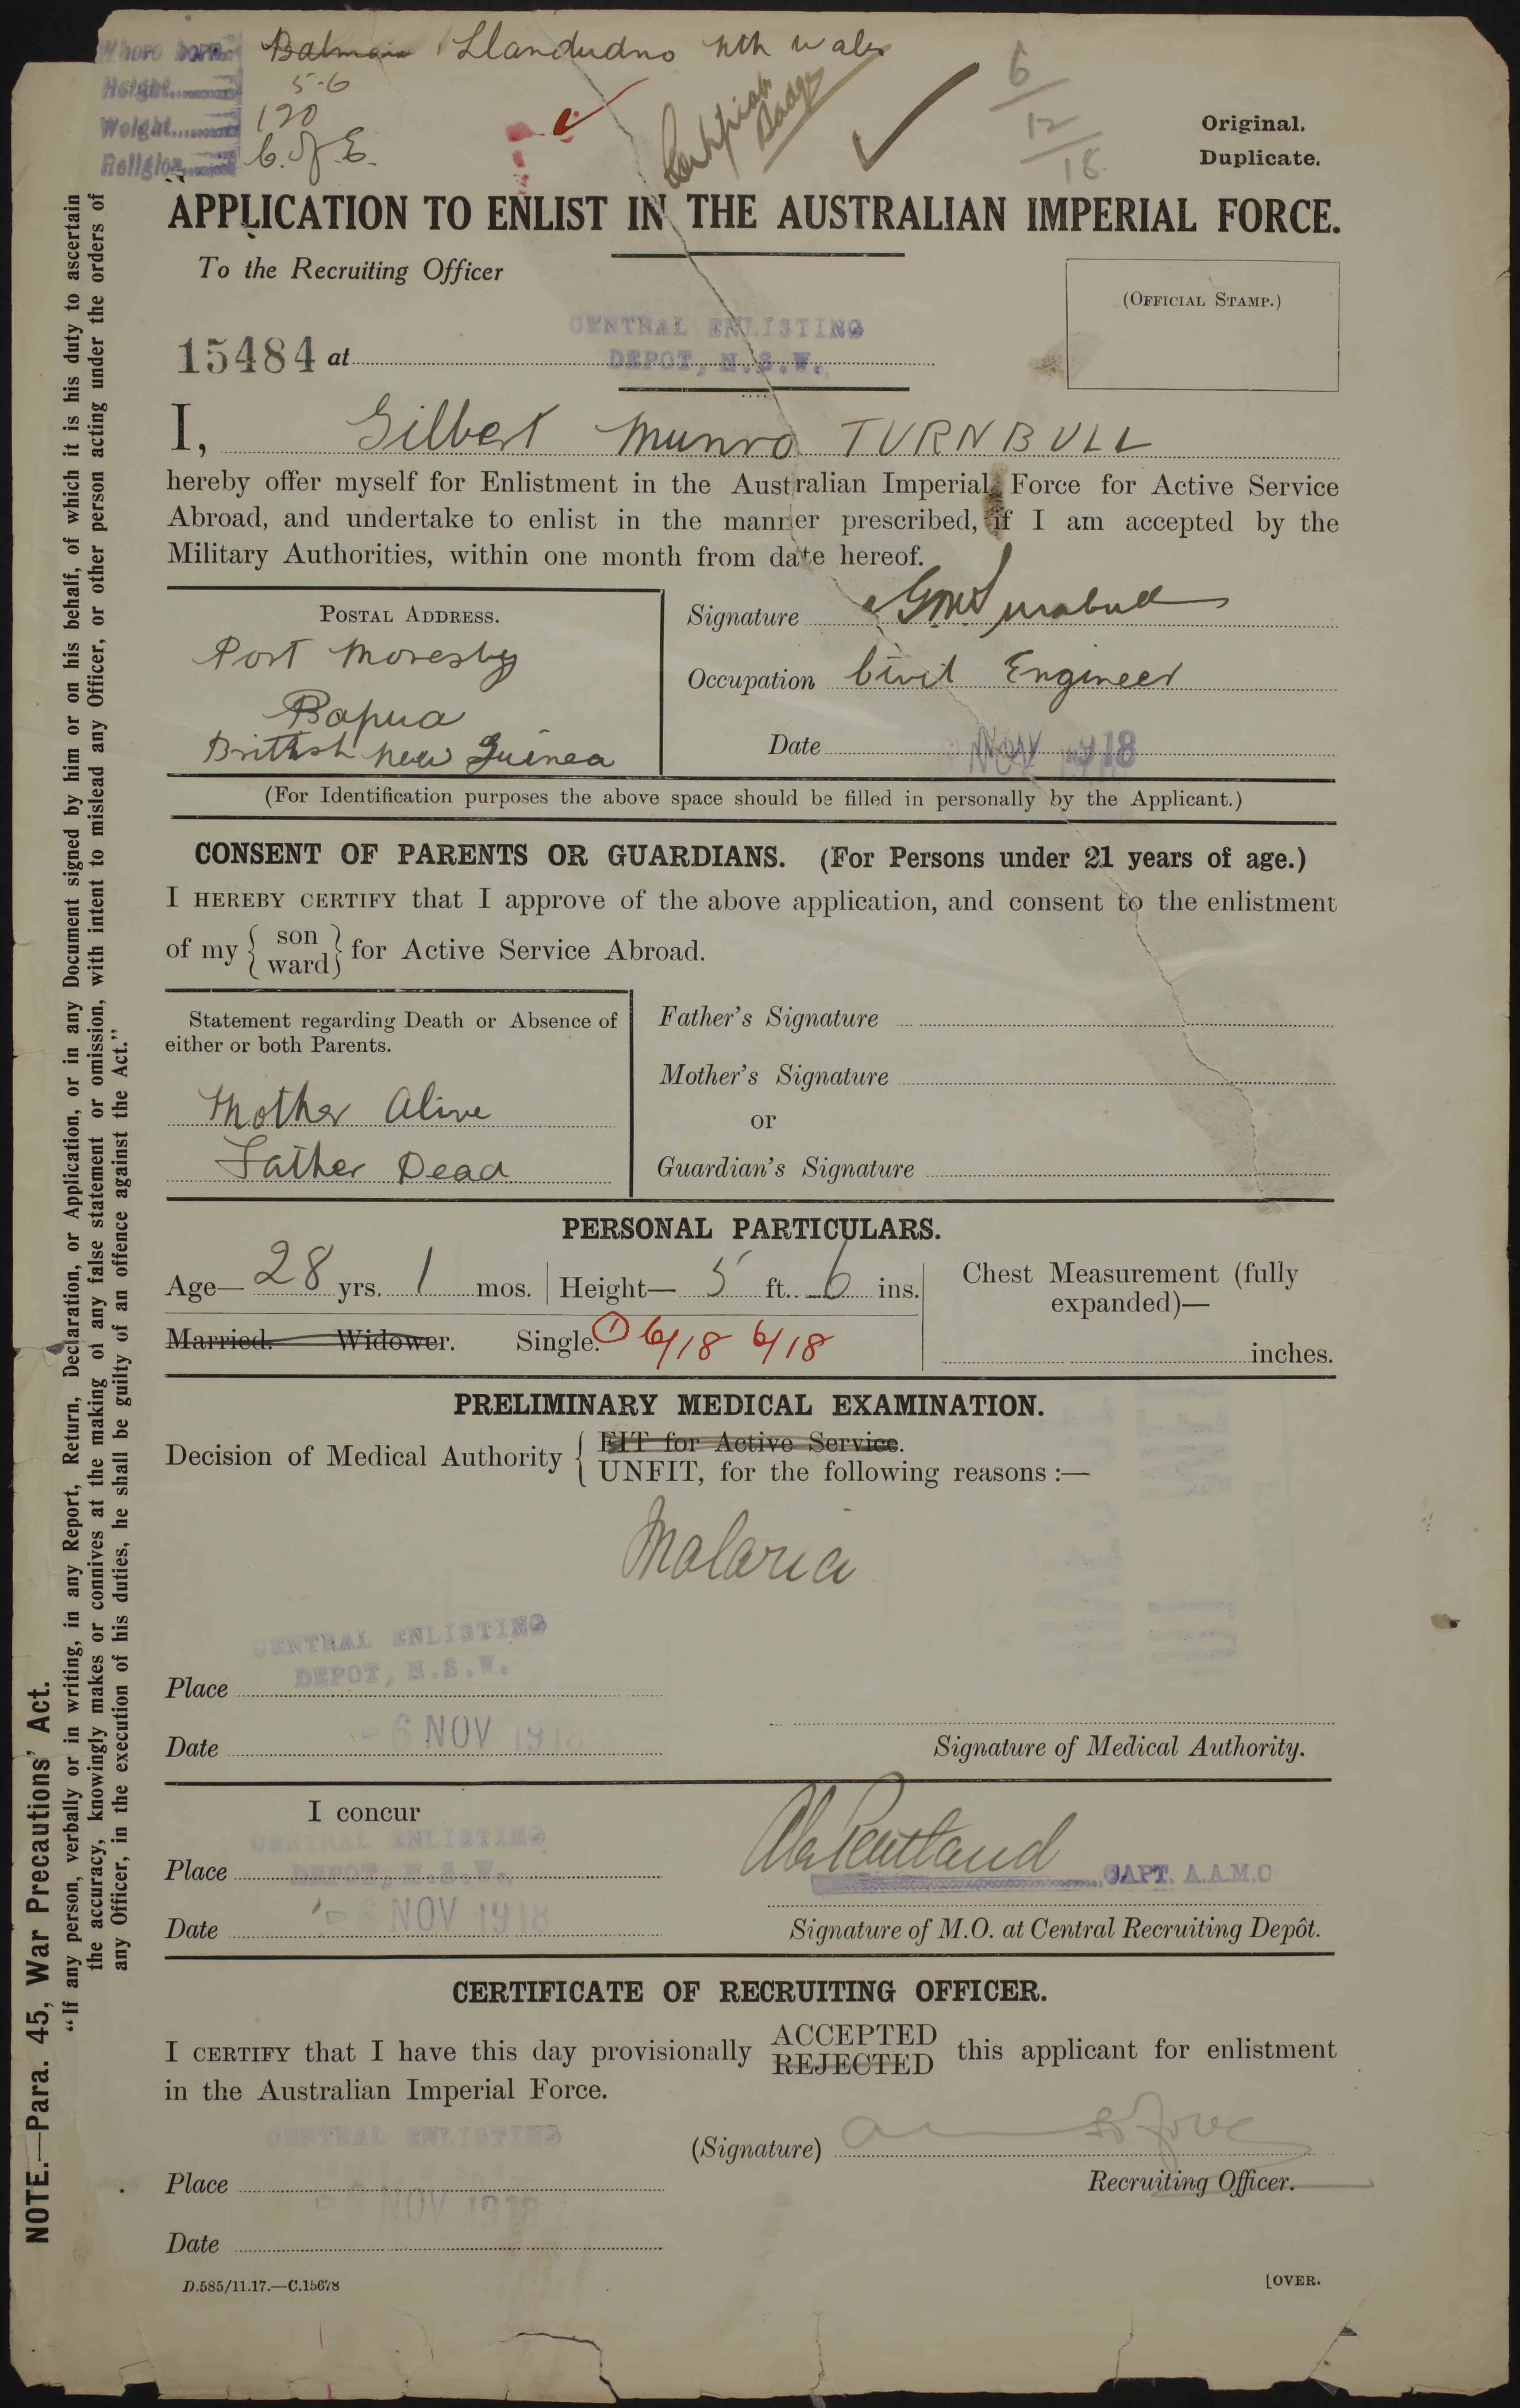 Where born Balmain Llandudno Nth Wales
Height 5-6
Weight 120
Religion C. of E.
Badge
6/12/18
Original.
Duplicate.
APPLICATION TO ENLIST IN THE AUSTRALIAN IMPERIAL FORCE.
To the Recruiting Officer
(OFFICIAL STAMP.)
15484 at CENTRAL ENLISTING
DEPOT, N.S.W.
I, Gilbert Munro TURNBULL
hereby offer myself for Enlistment in the Australian Imperial Force for Active Service
Abroad, and undertake to enlist in the manner prescribed, if I am accepted by the
Military Authorities, within one month from date hereof.
POSTAL ADDRESS.
Port Moresby
Papua
British New Guinea
Signature G.M. Turnbull
Occupation Civil Engineer
Date NOV 1918
(For Identification purposes the above space should be filled in personally by the Applicant.)
CONSENT OF PARENTS OR GUARDIANS. (For Persons under 21 years of age.)
I HEREBY CERTIFY that I approve of the above application, and consent to the enlistment
of my { son ward } for Active Service Abroad.
Statement regarding Death or Absence of
either or both Parents.
Mother Alive
Father Dead
Father's Signature
Mother's Signature
or
Guardian's Signature
PERSONAL PARTICULARS.
Age— 28 yrs. 1 mos. Height— 5 ft. 6 ins.
Chest Measurement (fully
expanded)—
Married. Widower. Single. 1 6/18 6/18
inches.
PRELIMINARY MEDICAL EXAMINATION.
Decision of Medical Authority { FIT for Active Service.
UNFIT, for the following reasons :—
Malaria
CENTRAL ENLISTING
DEPOT, N.S.W.
Place
Date -6 NOV 1918
Signature of Medical Authority.
I concur
CENTRAL ENLISTING
Place DEPOT, N.S.W.
CAPT. A.A.M.C
Date -6 NOV 1918
Signature of M.O. at Central Recruiting Depôt.
CERTIFICATE OF RECRUITING OFFICER.
I CERTIFY that I have this day provisionally ACCEPTED REJECTED this applicant for enlistment
in the Australian Imperial Force.
CENTRAL ENLISTING
(Signature)
Place
Recruiting Officer.
-6 NOV 1918
Date
D.585/11.17.—C.15678
[OVER.
NOTE.—Para. 45, War Precautions' Act.
"If any person, verbally or in writing, in any Report, Return, Declaration, or Application, or in any Document signed by him or on his behalf, of which it is his duty to ascertain
the accuracy, knowingly makes or connives at the making of any false statement or omission, with intent to mislead any Officer, or other person acting under the orders of
any Officer, in the execution of his duties, he shall be guilty of an offence against the Act."